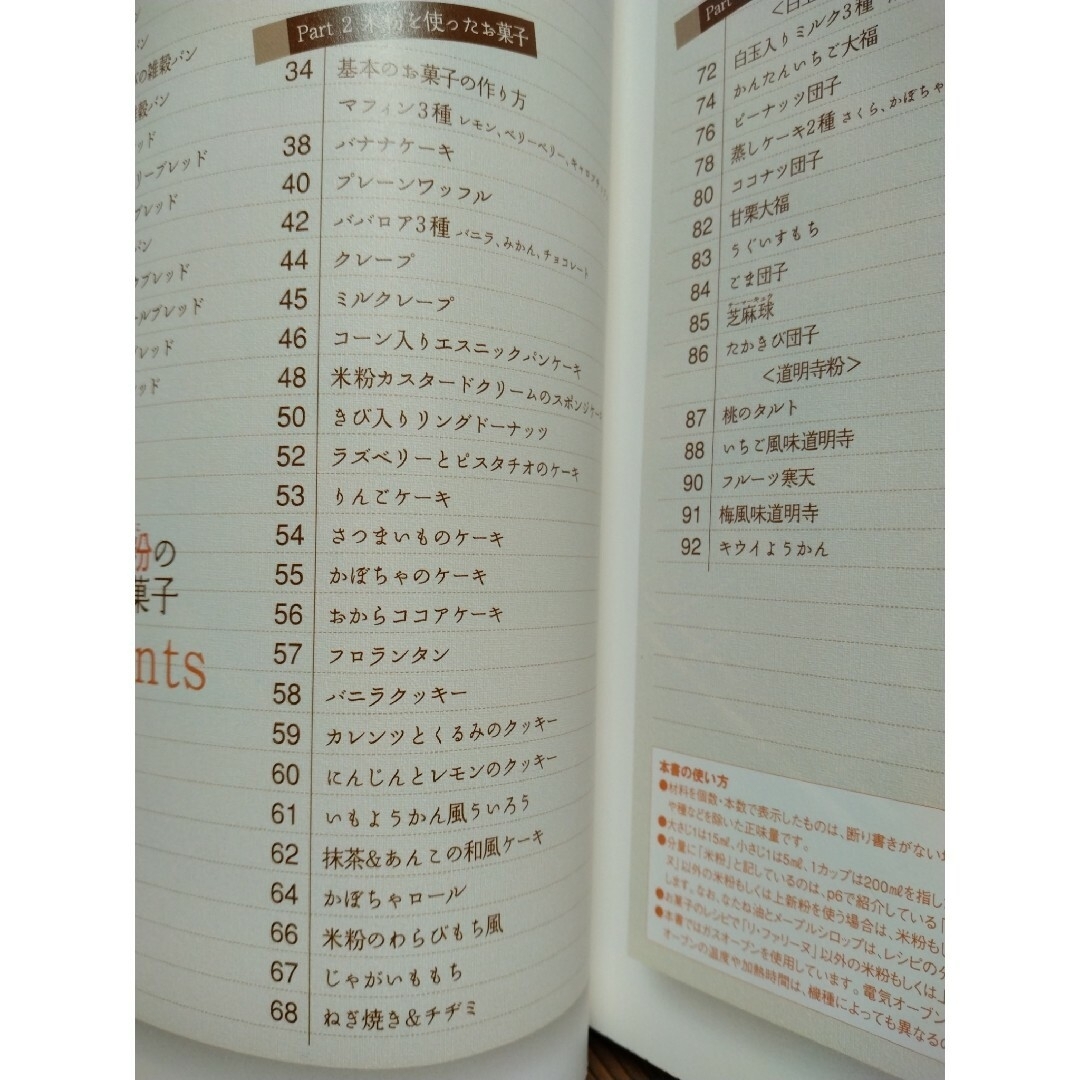 パン
の雑穀パン
穀パン
レッド
リーブレッド
ブレッド
パン
ブレッド
ールブレッド
ブレッド
レッド
粉の
菓子
nts
Part 2 米粉を使ったお菓子
34 基本のお菓子の作り方
マフィン3種 レモン、ベリーベリー、キャロブチップ
38 バナナケーキ
40 プレーンワッフル
42 ババロア3種 バニラ、みかん、チョコレート
44 クレープ
45 ミルクレープ
46 コーン入りエスニックパンケーキ
48 米粉カスタードクリームのスポンジケーキ
50 きび入りリングドーナッツ
52 ラズベリーとピスタチオのケーキ
53 りんごケーキ
54 さつまいものケーキ
55 かぼちゃのケーキ
56 おからココアケーキ
57 フロランタン
58 バニラクッキー
59 カレンツとくるみのクッキー
60 にんじんとレモンのクッキー
61 いもようかん風ういろう
62 抹茶&あんこの和風ケーキ
64 かぼちゃロール
66 米粉のわらびもち風
67 じゃがいももち
68 ねぎ焼き&チヂミ
Part
<白玉
72 白玉入りミルク3種
74 かんたんいちご大福
76 ピーナッツ団子
78 蒸しケーキ2種 さくら、かぼちゃ
80 ココナツ団子
82 甘栗大福
83 うぐいすもち
84 ごま団子
85 芝麻球
86 たかきび団子
<道明寺粉>
87 桃のタルト
88 いちご風味道明寺
90 フルーツ寒天
91 梅風味道明寺
92 キウイようかん
本書の使い方
●材料を個数・本数で表示したものは、断り書きがない
や種などを除いた正味量です。
●大さじ1は15㎖、小さじ1は5㎖、1カップは200㎖を指し
●分量に「米粉」と記しているのは、p6で紹介している「
ヌ」以外の米粉もしくは上新粉を使う場合は、米粉もし
します。なお、なたね油とメープルシロップは、レシピの
●お菓子のレシピで「リ・ファリーヌ」以外の米粉もしくは
●本書ではガスオーブンを使用しています。電気オーブン
オーブンの温度や加熱時間は、機種によっても異なるの